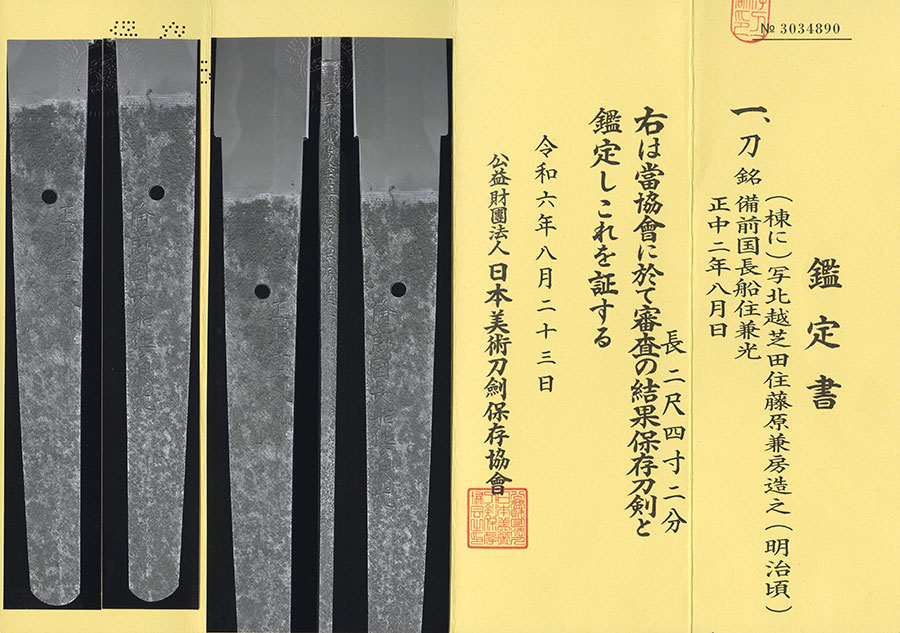 № 3034890
鑑定書
一、刀 銘 (棟に)写北越芝田住藤原兼房造之(明治頃)
備前国長船住兼光
正中二年八月日
長 二尺四寸二分
右は當協會に於て審査の結果保存刀剣と
鑑定しこれを証する
令和六年八月二十三日
公益財團法人 日本美術刀劍保存協會